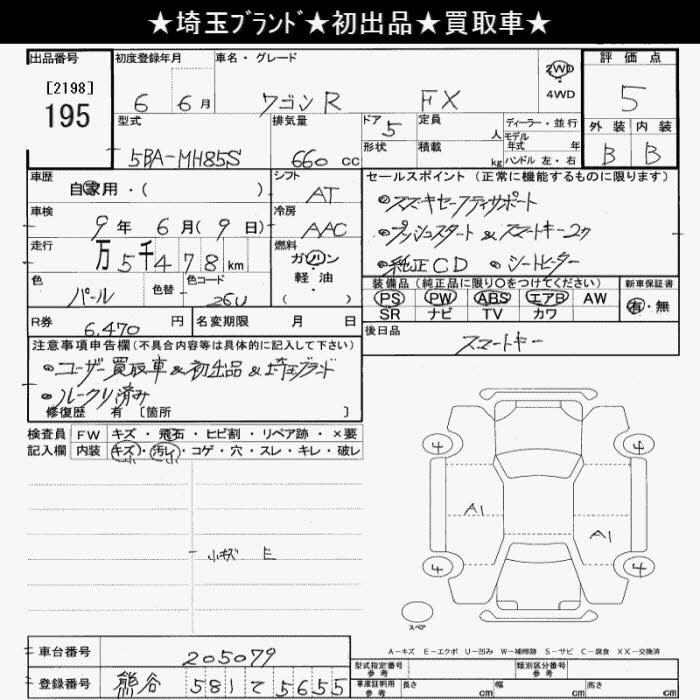 ★埼玉ﾌﾞﾗﾝﾄﾞ★初出品★買取車★
出品番号 初度登録年月 車名・グレード 評価点
[2198] 6 6月 ワゴンR FX 2WD 4WD 5
195
型式 排気量 ドア 定員 ディーラー・並行 外装 内装
5BA-MH85S 660cc 5 人 モデル年式 年 B B
形状 積載 kg ハンドル 左・右
車歴 シフト セールスポイント (正常に機能するものに限ります)
自家用・( ) AT スズキセーフティサポート
車検 冷房 プッシュスタート & スマートキー2ケ
9年 6月(9日) AAC 純正CD シートヒーター
走行 燃料
万5千478km ガソリン 軽油 ( )
装備品 (純正品に限り○をつけてください) 新車保証書
PS PW ABS エアB AW 有・無
SR ナビ TV カワ
色 色替 色コード
パール 26U
R券 6,470円 名変期限 月 日
後日品 スマートキー
注意事項申告欄(不具合内容等は具体的に記入して下さい)
ユーザー買取車 & 初出品 & 埼玉ブランド
ルークリ済み
修復歴 有 [箇所 ]
検査員 FW キズ・飛石・ヒビ割・リペア跡・×要
記入欄 内装 キズ・汚れ・コゲ・穴・スレ・キレ・破レ
小キズ E
4 4
A1 A1
4 4
スペア
A-キズ E-エクボ U-凹み W-補修跡 S-サビ C-腐食 XX-交換済
車台番号 205079
登録番号 熊谷 581 て 5655
型式指定番号 参考 類別区分番号 参考
車庫証明用 参考 長さ cm 幅 cm 高さ cm